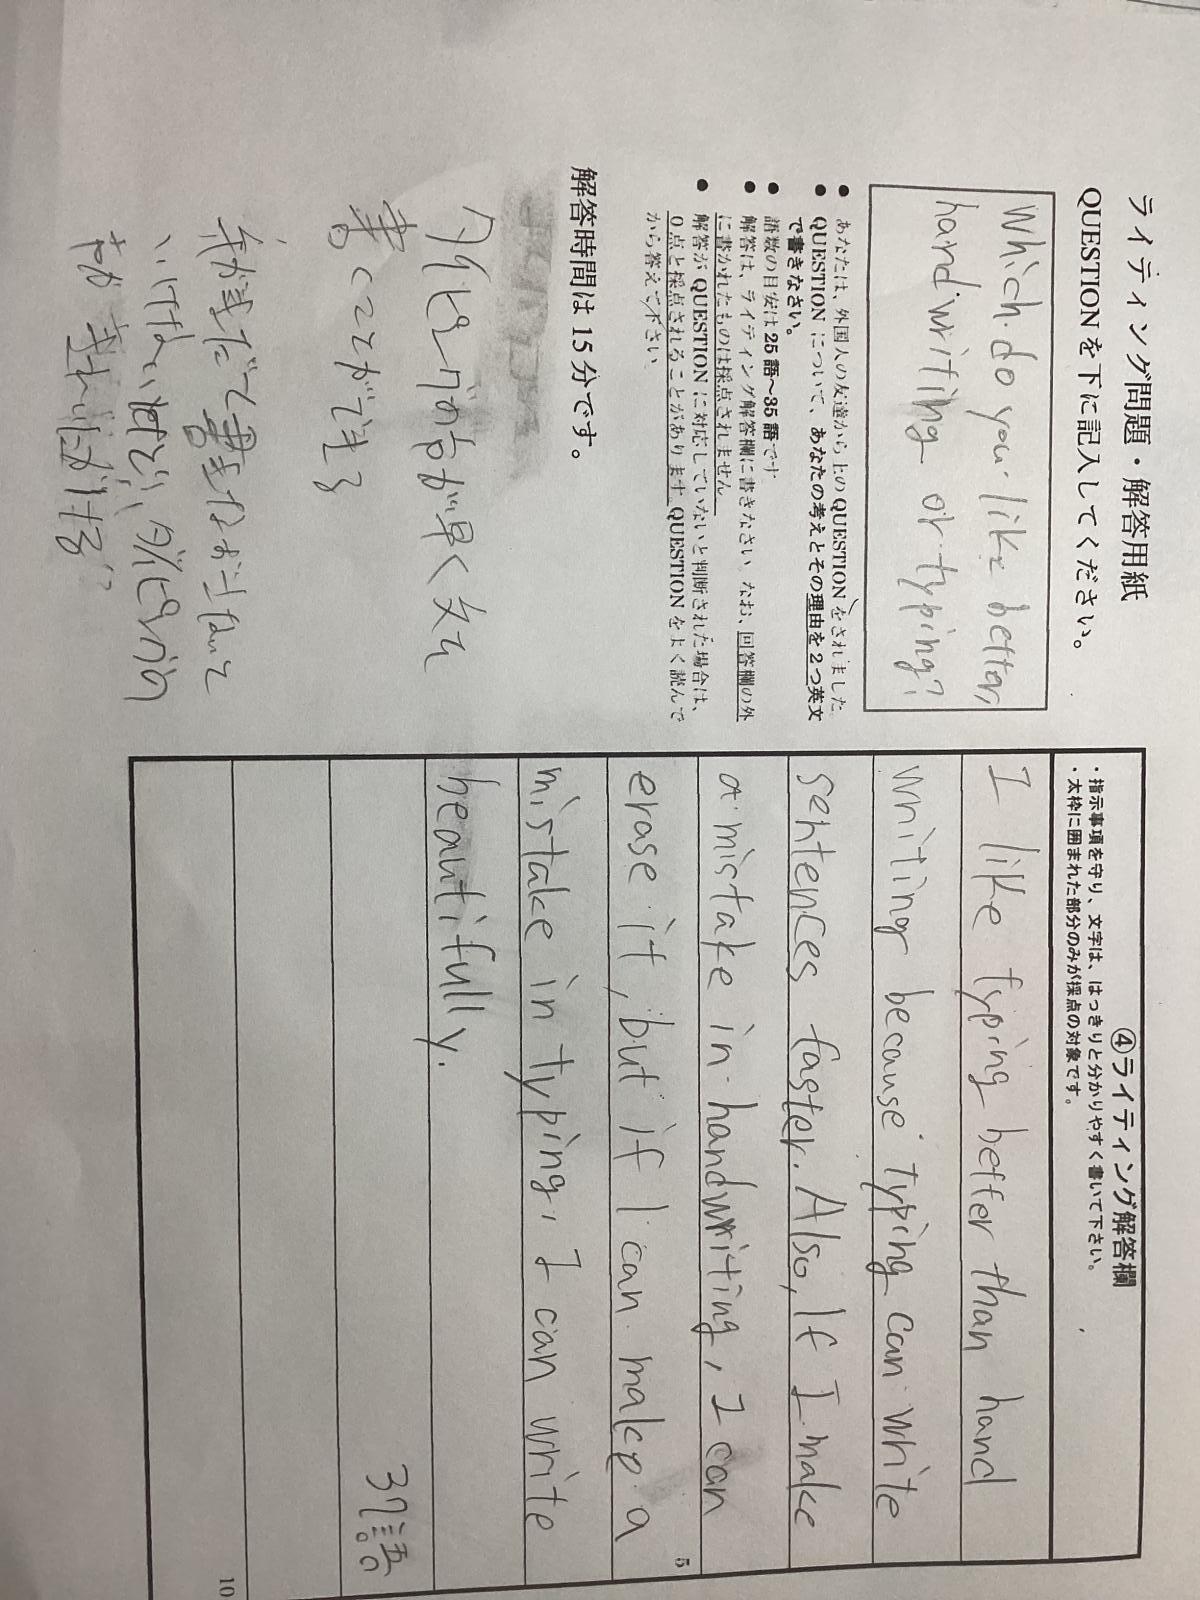 ライティング問題・解答用紙
QUESTIONを下に記入してください。
Which do you like better,
handwriting or typing?
● あなたは、外国人の友達から上のQUESTIONをされました。
● QUESTIONについて、あなたの考えとその理由を2つ英文
で書きなさい。
● 語数の目安は25語～35語です
● 解答は、ライティング解答欄に書きなさい。なお、回答欄の外
に書かれたものは採点されません
● 解答がQUESTIONに対応していないと判断された場合は、
0点と採点されることがあります。QUESTIONをよく読んで
から答えて下さい
解答時間は15分です。
タイピングの方が早く文を
書くことができる
書きなおさないと
いけないけど、タイピングの
方が きれいに
④ライティング解答欄
・指示事項を守り、文字は、はっきりと分かりやすく書いて下さい。
・太枠に囲まれた部分のみが採点の対象です。
I like typing better than hand
writing because typing can write
sentences faster. Also, If I make
a mistake in handwriting, I can
erase it, but if I can make a
mistake in typing, I can write
beautifully.
37語
5
10